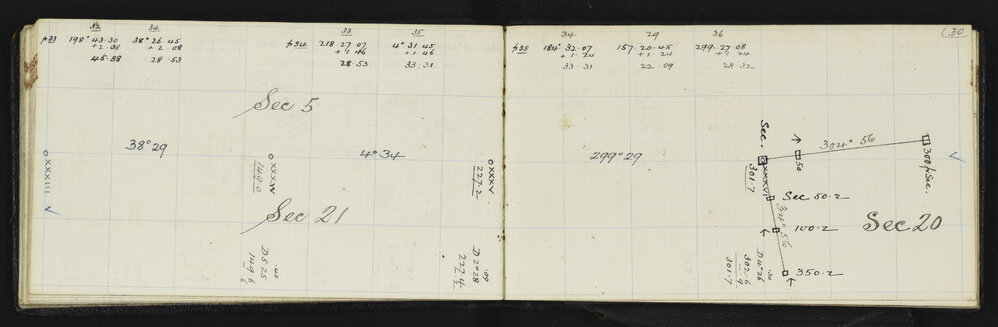 32 34 33 35
p33 198° 43·30 38° 26·45 p34 218 27 07 4° 31 45
+2·08 +2·08 +1 46 +1·46
45·38 28·53 28·53 33·31
Sec 5
38°29
4°34
XXXIII
XXXIV
149.0
XXXV
227.2
Sec 21
D 5·25
·45
149·6
D 2°28
·09
227·4
34 29 36 (30
p35 184° 32·07 157·20·45 299·27·08
+1·24 +1·24 +1 24
33·31 22·09 28·32
299°29
Sec.
XXXVI
301·7
50
304° 56
300 p Sec.
Sec 50·2
34° 56
100·2
350·2
Sec 20
D 4°26
·30
302·6
·9
301·7